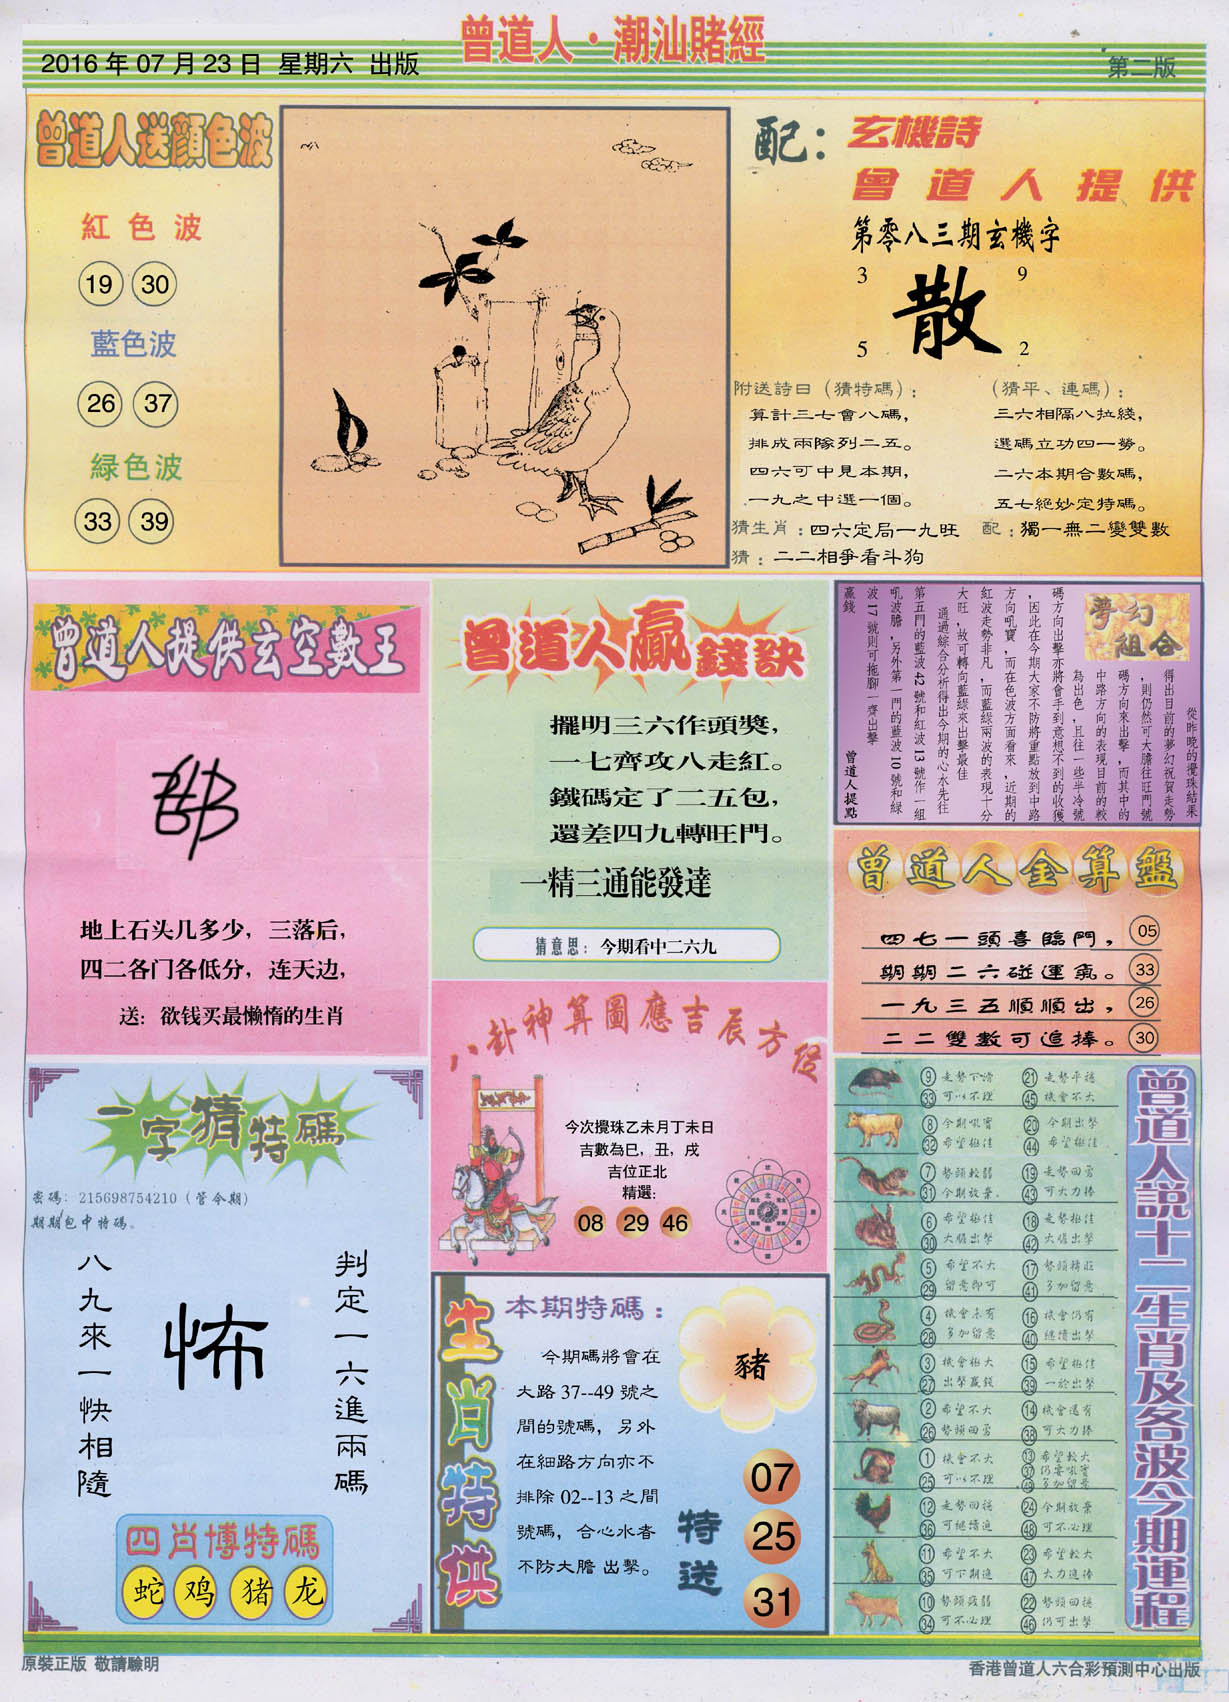 曾道人·潮汕賭經
2016年07月23日 星期六 出版
第二版
曾道人送顏色波
紅色波
19 30
藍色波
26 37
緑色波
33 39
配：玄機詩
曾道人提供
第零八三期玄機字
3 9
散
5 2
附送詩曰（猜特碼）：
算計三七會八碼，
排成兩隊列二五。
四六可中見本期，
一九之中選一個。
（猜平、連碼）：
三六相隔八拉綫，
選碼立功四一勞。
二六本期合數碼，
五七絕妙定特碼。
猜生肖：四六定局一九旺 配：獨一無二變雙數
猜：二二相爭看斗狗
曾道人提供玄空數王
地上石头几多少，三落后，
四二各门各低分，连天边，
送：欲钱买最懒惰的生肖
曾道人贏錢訣
擺明三六作頭獎，
一七齊攻八走紅。
鐵碼定了二五包，
還差四九轉旺門。
一精三通能發達
猜意思：今期看中二六九
夢幻組合
從昨晚的攪珠結果
得出目前的夢幻祝賀走勢
，則仍然可大膽往旺門號
碼方向來出擊，而其中的
中路方向的表現目前的較
為出色，且往一些半冷號
碼方向出擊亦將會手到意想不到的收獲
，因此在今期大家不防將重點放到中路
方向吼寶，而在色波方面看來，近期的
紅波走勢非凡，而藍綠兩波的表現十分
大旺，故可轉向藍綠來出擊最佳
通過綜合分析得出今期的心水先往
第五門的藍波42號和紅波13號作一組
吼波膽，另外第一門的藍波10號和綠
波17號則可拖腳一齊出擊
贏錢
曾道人提點
曾道人金算盤
四七一頭喜臨門，05
期期二六碰運氣。33
一九三五順順出，26
二二雙數可追捧。30
一字猜特碼
密碼：215698754210（管令期）
期期包中特碼。
判定一六進兩碼
怖
八九來一快相隨
四肖博特碼
蛇 鸡 猪 龙
八卦神算圖應吉辰方位
今次攪珠乙未月丁未日
吉數為巳，丑，戌
吉位正北
精選：
08 29 46
生肖特供
本期特碼：
今期碼將會在
大路37--49號之
間的號碼，另外
在細路方向亦不
排除02--13之間
號碼，合心水者
不防大膽出擊。
豬
特送
07
25
31
曾道人說十二生肖及各波今期運程
9 走勢下滑 21 走勢平穩
33 可以不理 45 機會不大
8 今期吼寶 20 今期出擊
32 希望極佳 44 希望極佳
7 勢頭較弱 19 走勢回勇
31 今期放棄。 43 可大力捧
6 希望極佳 18 走勢極佳
30 大膽出擊 42 大膽出擊
5 希望不大 17 勢頭轉旺
29 留意即可 41 多加留意
4 機會未有 16 機會仍有
28 多加留意 40 繼續出擊
3 機會極大 15 希望極佳
27 出擊贏錢 39 一於出擊
2 希望不大 14 機會還有
26 勢頭回勇 38 可大力捧
1 機會不大 13 希望較大
37 仍要吼實
25 可以不理 49 多加留意
12 走勢回穩 24 今期放棄
36 可繼續追 48 可不必理
11 希望不大 23 希望較大
35 可下期追 47 大力追捧
10 勢頭疲弱 22 勢頭回穩
34 可不必理 46 仍可出擊
原裝正版 敬請驗明
香港曾道人六合彩預測中心出版